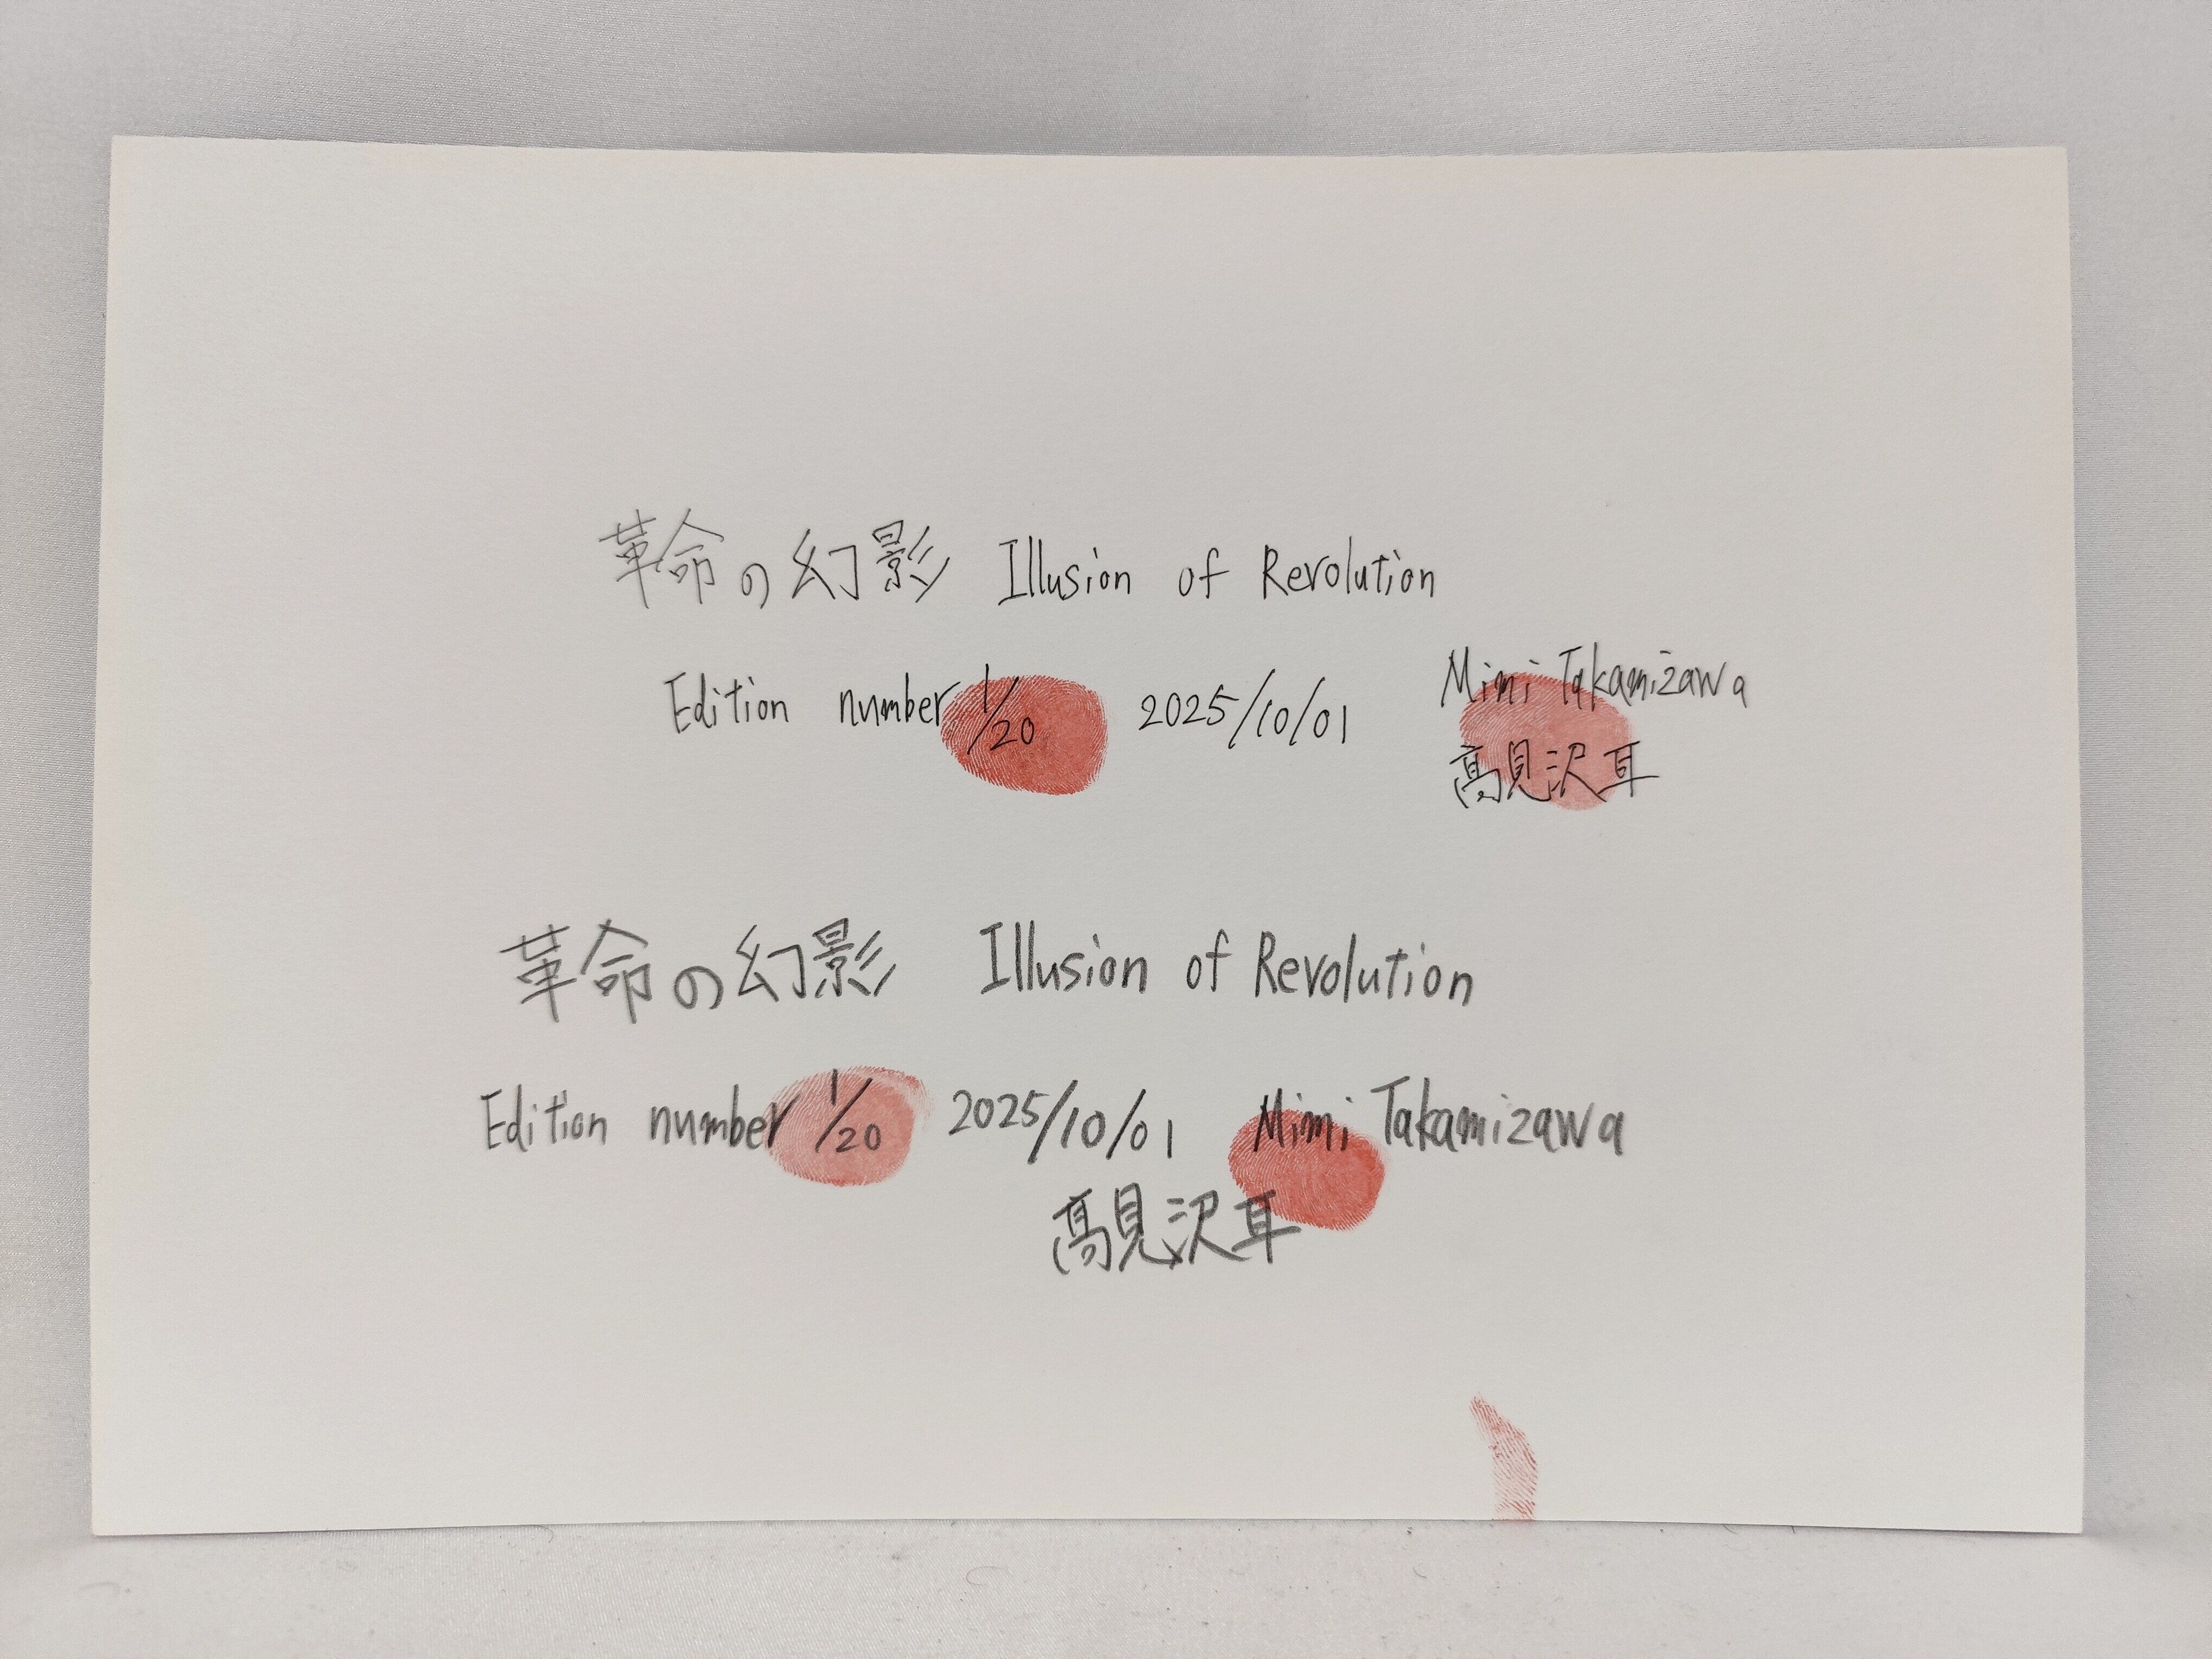 革命の幻影 Illusion of Revolution
Edition number 1/20 2025/10/01 Mimi Takamizawa
髙見沢耳
革命の幻影 Illusion of Revolution
Edition number 1/20 2025/10/01 Mimi Takamizawa
髙見沢耳